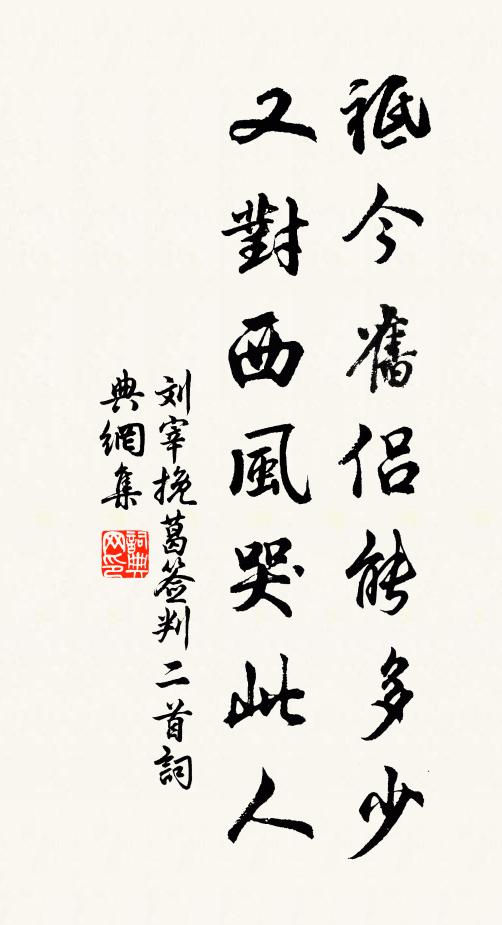 祗今舊侶能多少
又對西風哭此人
刘宰挽葛签判二首詞
典網集
詞典网印